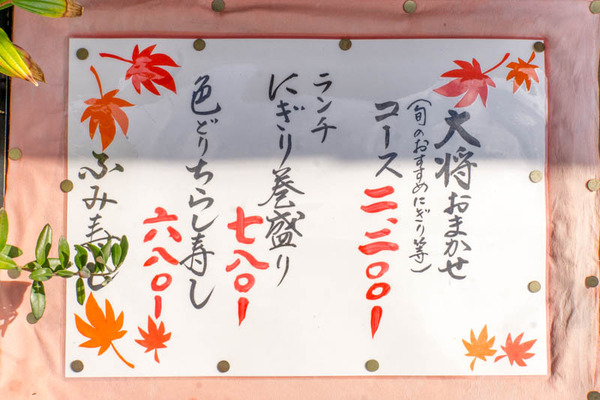 大将おまかせ
(旬のおすすめにぎり等)
コース 二、二〇〇ー
ランチ
にぎり巻盛り
七八〇ー
色どりちらし寿し
六八〇ー
ふみ寿し